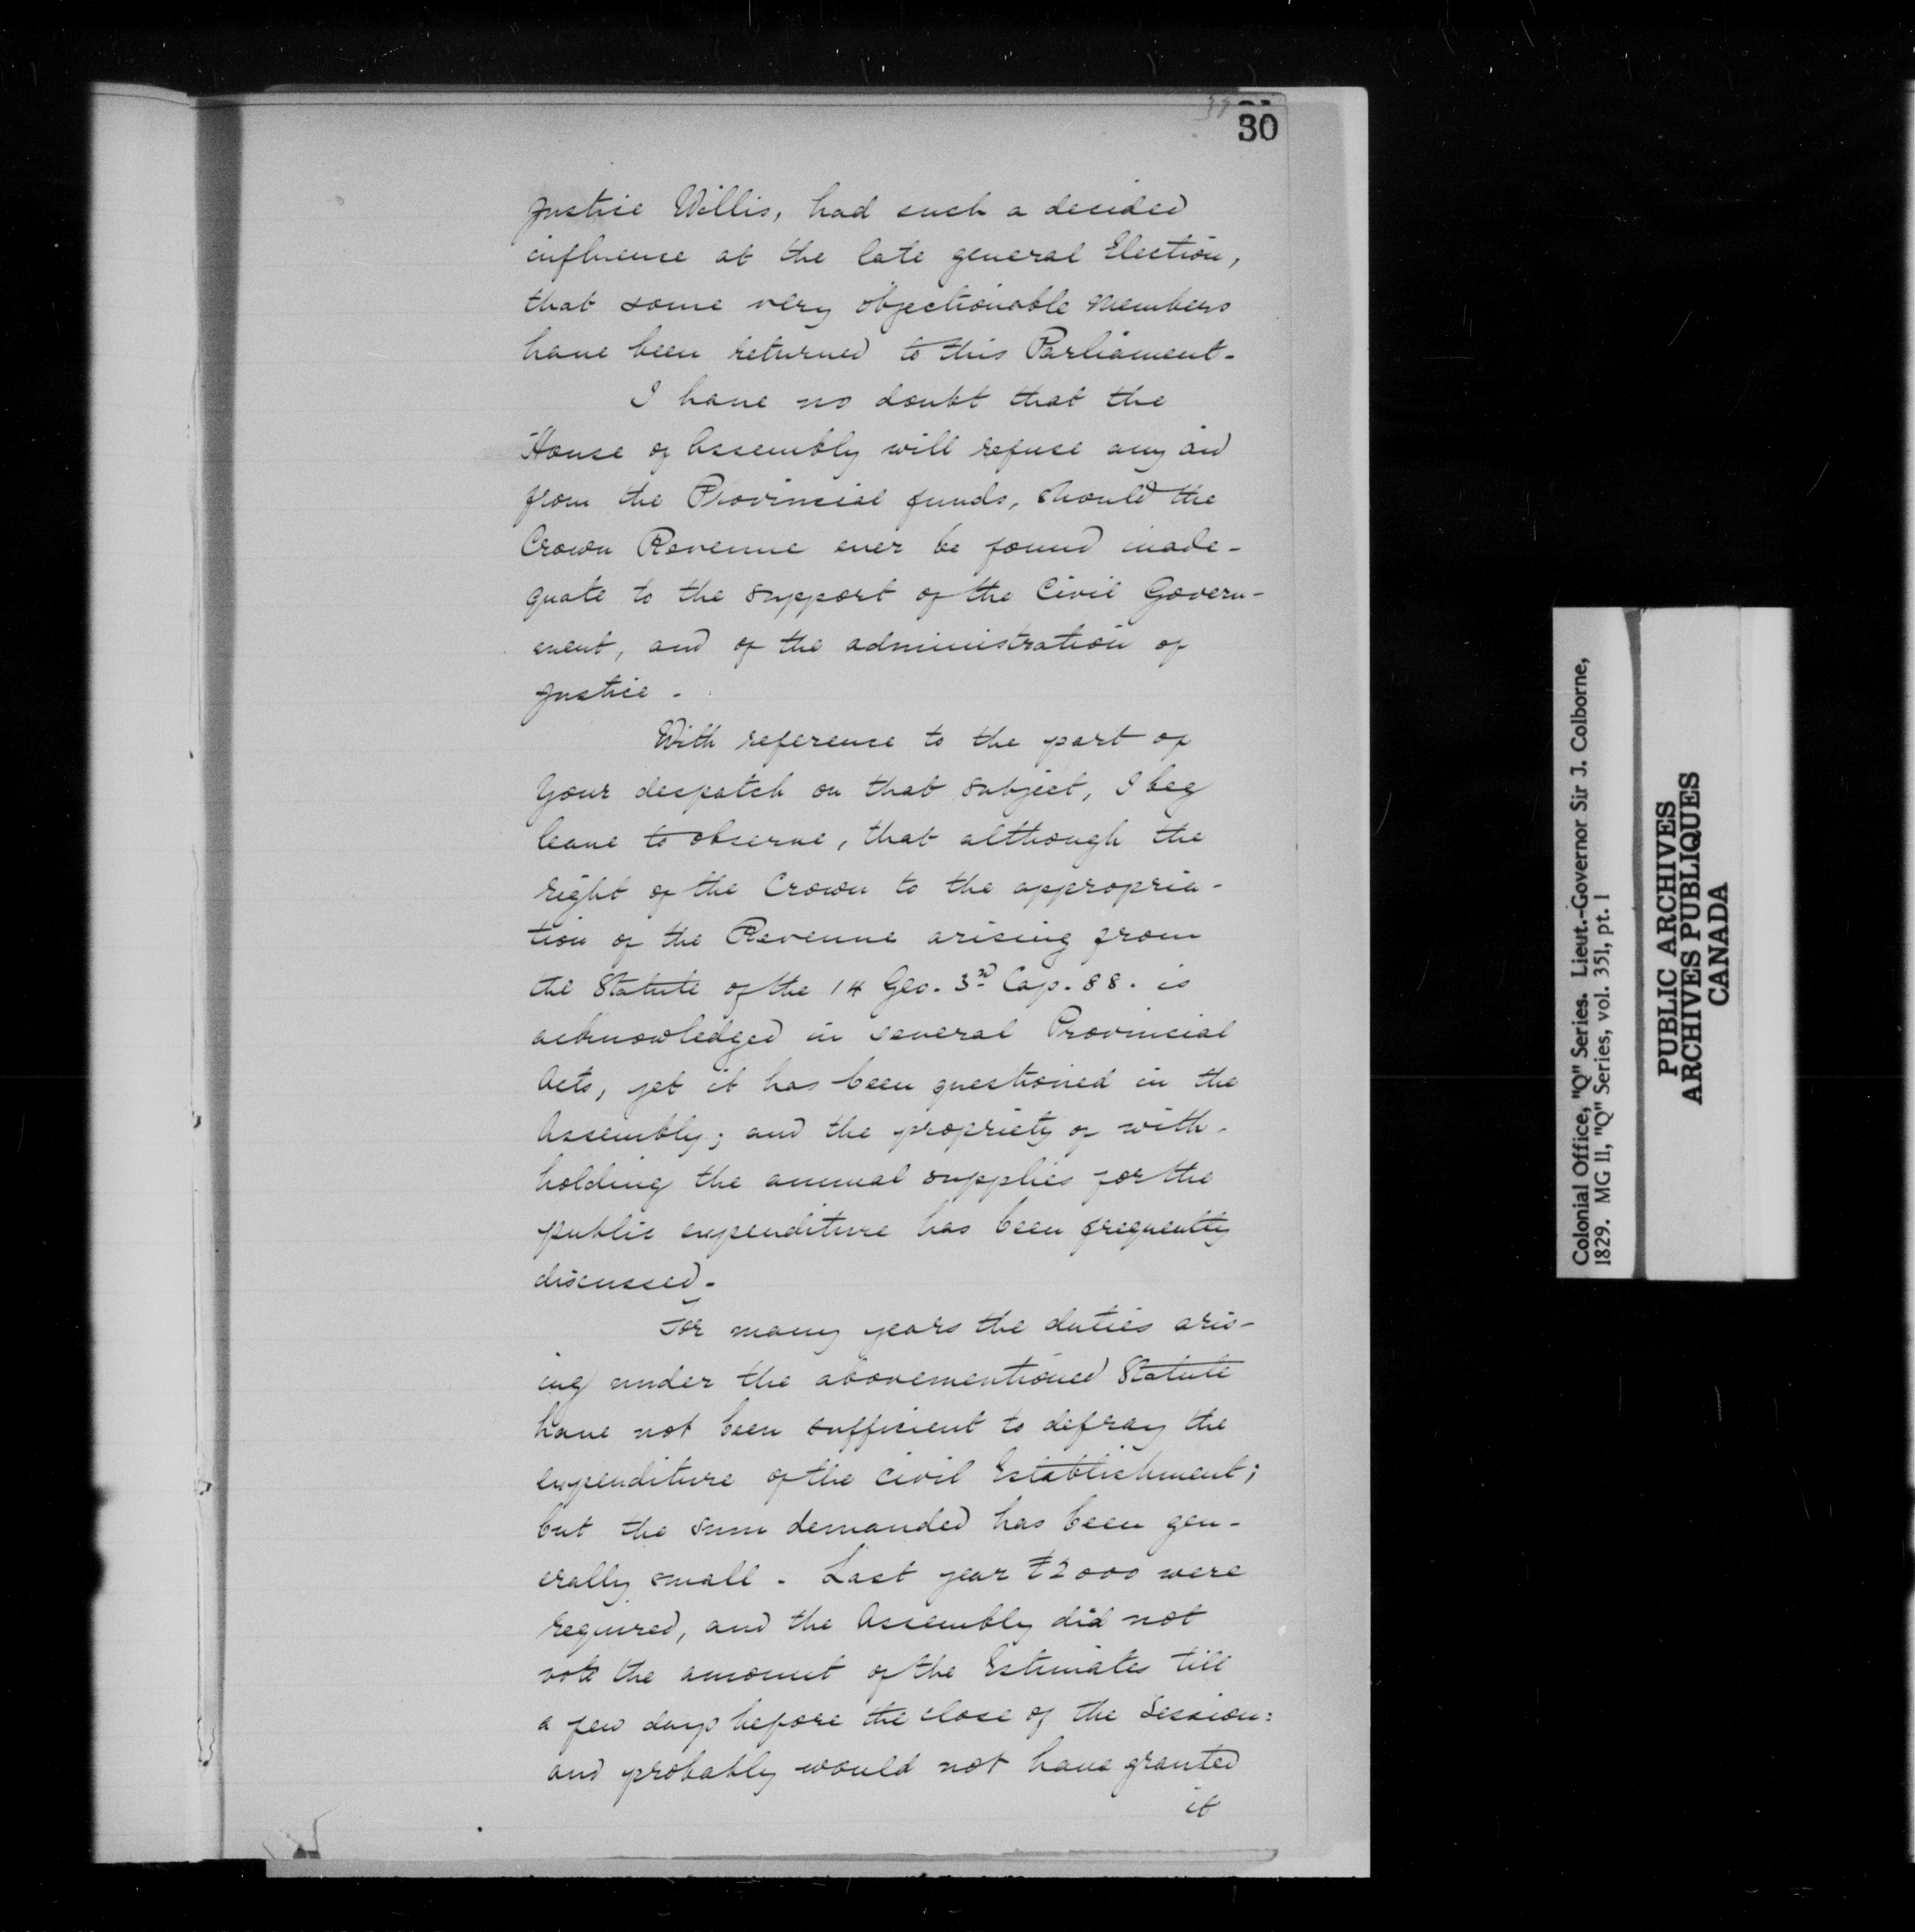 30
Justice Willis, had such a decided
influence at the late general Election,
that some very objectionable Members
have been returned to this Parliament.
I have no doubt that the
House of Assembly will refuse any aid
from the Provincial funds, should the
Crown Revenue ever be found inade-
quate to the support of the Civil Govern-
ment, and of the administration of
Justice.
With reference to the part of
Your despatch on that subject, I beg
leave to observe, that although the
right of the Crown to the appropria-
tion of the Revenue arising from
the Statute of the 14 Geo. 3rd Cap. 88. is
acknowledged in several Provincial
Acts, yet it has been questioned in the
Assembly; and the propriety of with-
holding the annual supplies for the
public expenditure has been frequently
discussed.
For many years the duties aris-
ing under the abovementioned Statute
have not been sufficient to defray the
expenditure of the civil Establishment;
but the sum demanded has been gen-
erally small. Last year £2000 were
required, and the Assembly did not
vote the amount of the Estimates till
a few days before the close of the Session:
and probably would not have granted
it
Colonial Office, "Q" Series. Lieut.-Governor Sir J. Colborne,
1829. MG 11, "Q" Series, vol. 351, pt. 1
PUBLIC ARCHIVES
ARCHIVES PUBLIQUES
CANADA